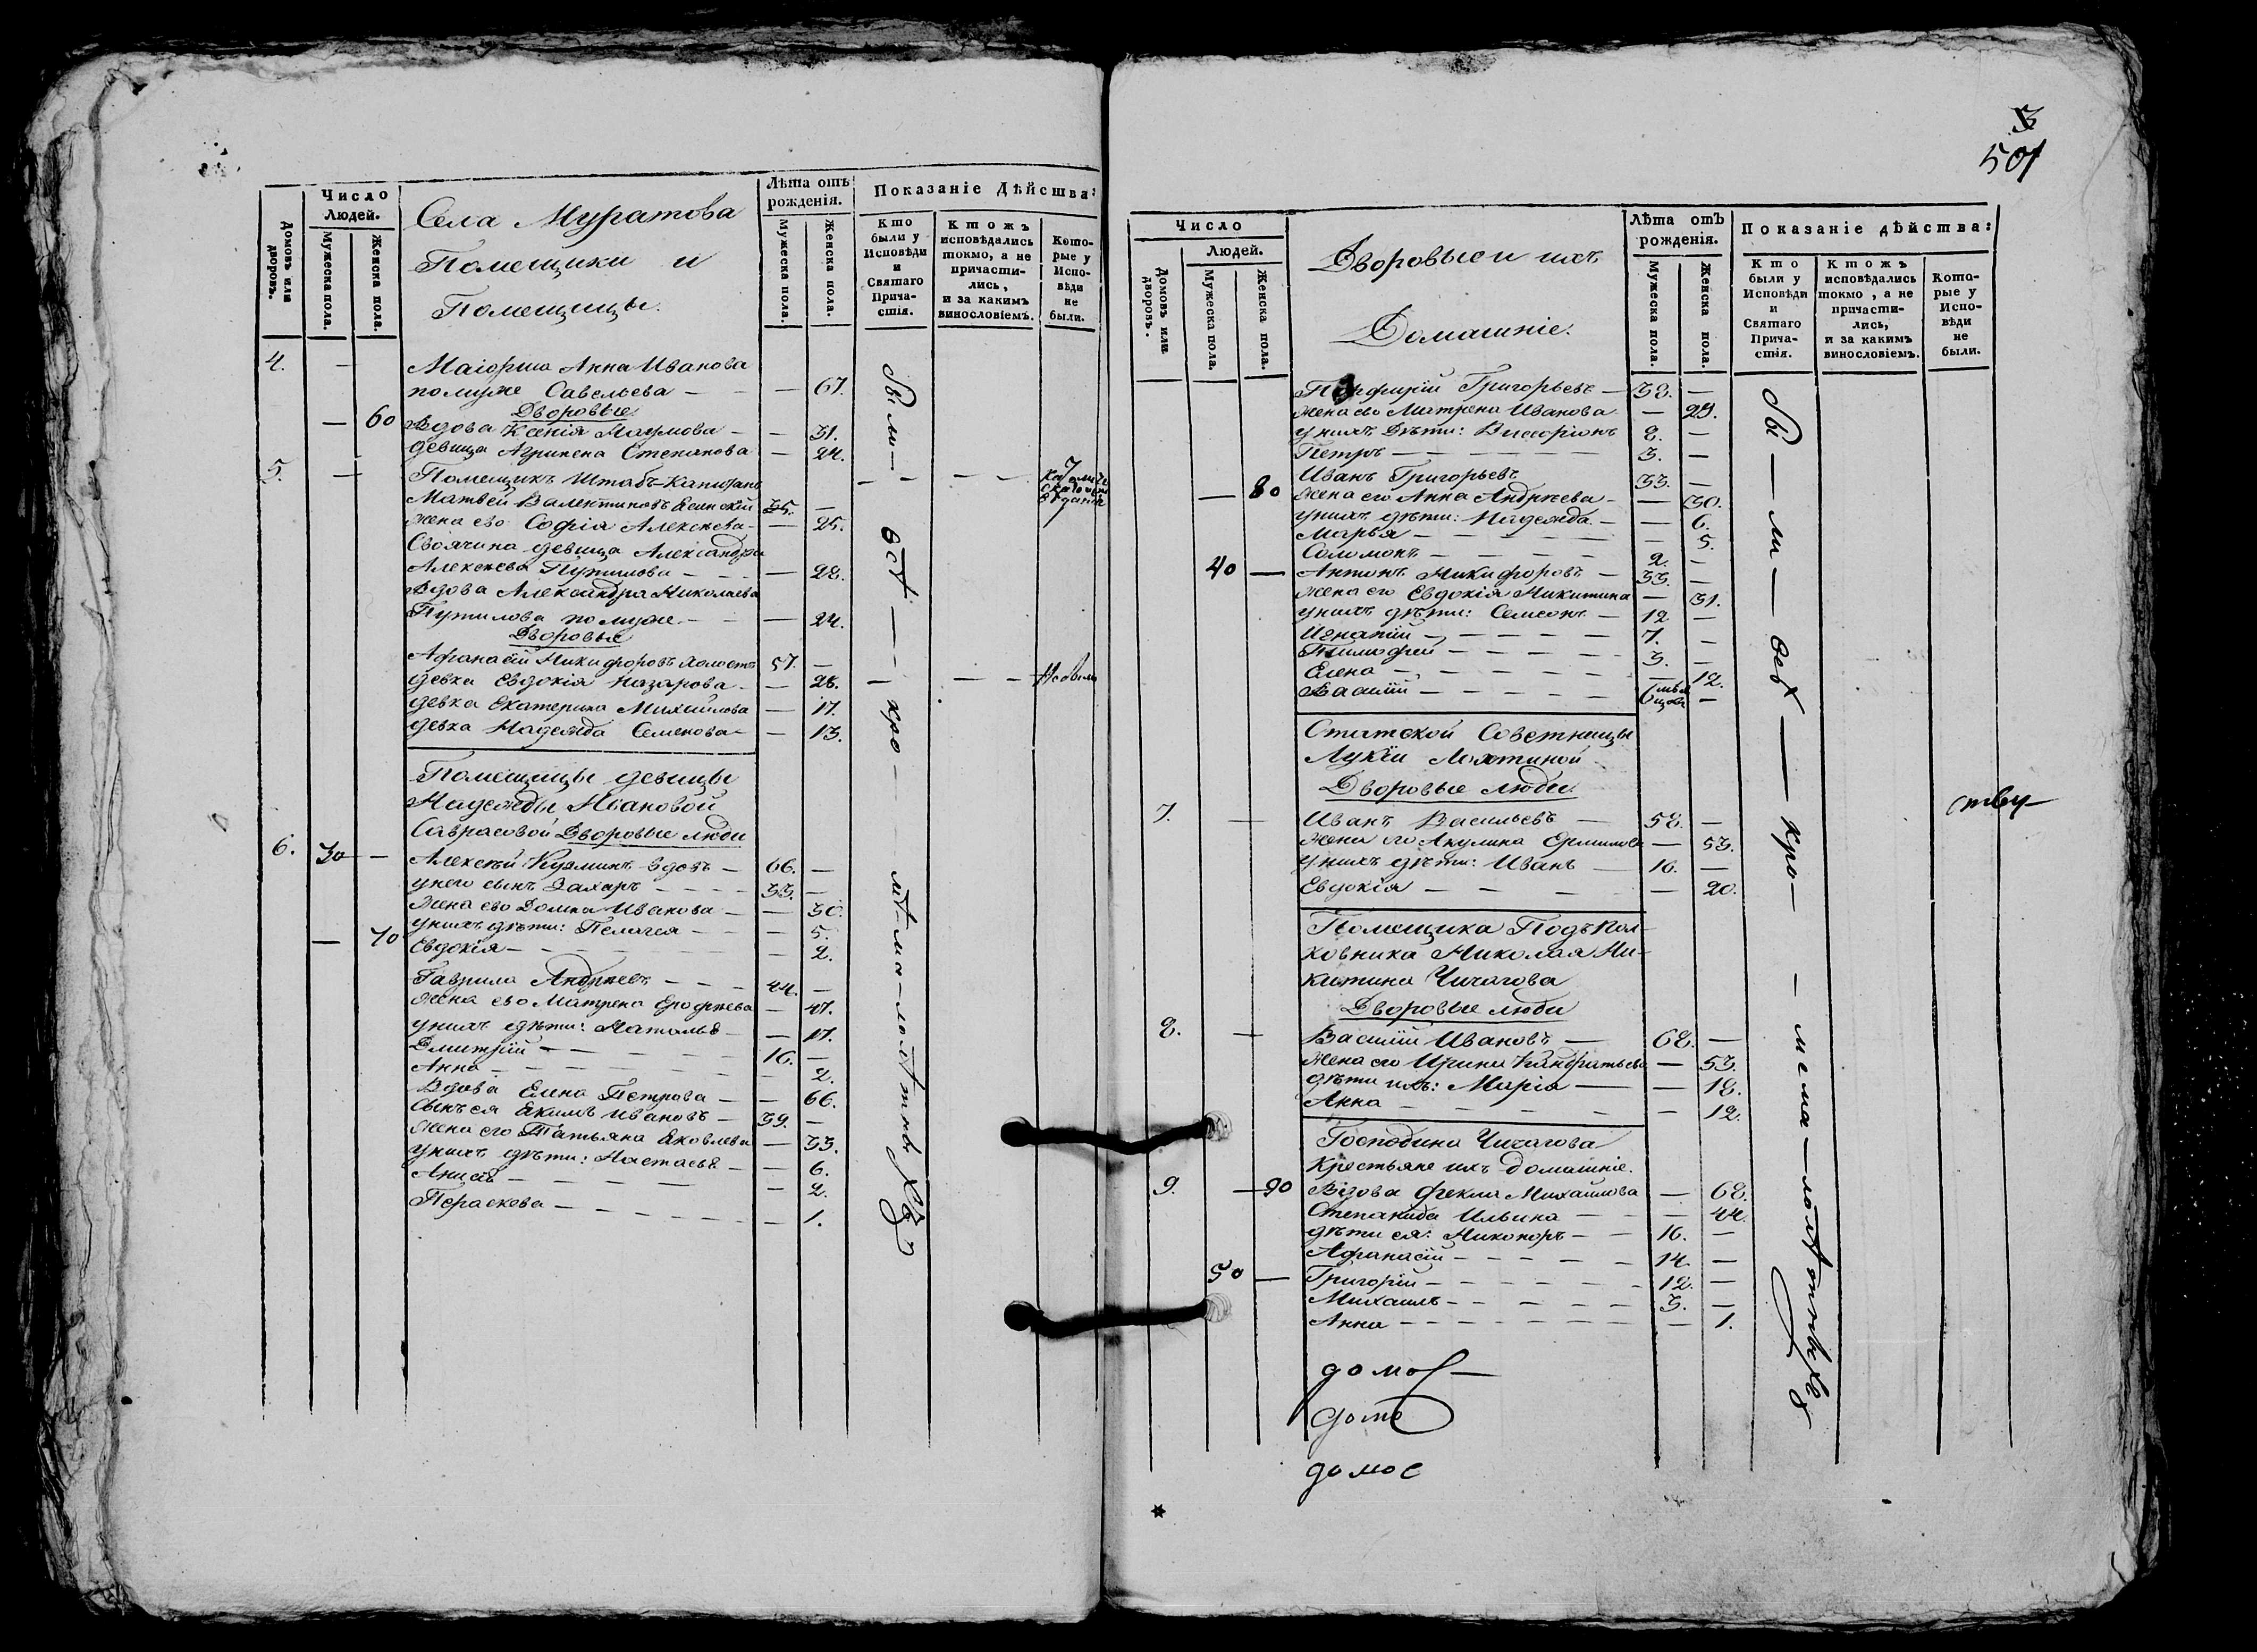 Число
Людей.
Домовъ или дворовъ.
Мужеска пола.
Женска пола.
Села Муратова
Помещики и
Помещицы.
Лѣта отъ
рожденія.
Мужеска пола.
Женска пола.
Показаніе Дѣйства:
Кто
были у
Исповѣди
и
Святаго
Прича-
стія.
Ктожъ
исповѣдались
токмо, а не
причасти-
лись,
и за какимъ
винословіемъ.
Кото-
рые у
Испо-
вѣди
не
были.
4. — Маіорша Анна Иванова
помуже Савельева — — 67.
Дворовые
— 60 Вдова Ксенія Наумова — — 31.
девица Агрипена Степанова — 24.
5. — Помещикъ Штабъ-Капитанъ
Матвей Валентиновъ 35. —
жена его Софія Алексеева — — 25.
Своячина девица Александра
Алексеева Путилова — — 28.
Вдова Александра Николаева
Путилова помуже — — 24.
Дворовые
Афанасій Никифоровъ холостъ 57. —
девка Евдокія Назарова — — 28.
девка Екатерина Михайлова — 17.
девка Надежда Семенова — — 13.
Помещицы девицы
Надежды Ивановой
Саврасовой Дворовые люди
6. 30 — Алексѣй Кузминъ вдовъ — 66. —
унего сынъ Захаръ — — — 33. —
жена ево Домна Иванова — — 30.
унихъ дѣти: Пелагея — — — 5.
— 70 Евдокія — — — — 2.
Гаврила Андреевъ — — — 44. —
жена ево Матрена Ерофѣева — 47.
унихъ дѣти: Наталья — — 17.
Дмитрій — — — — 16. —
Анна — — — — — 2.
Вдова Елена Петрова — — 66.
Сынъ ея Екимъ Ивановъ — 39. —
жена его Татьяна Яковлева — 33.
унихъ дѣти: Настасья — — 6.
Анися — — — — — 2.
Пераскева — — — — — 1.
3
501
Число
Людей.
Домовъ или дворовъ.
Мужеска пола.
Женска пола.
Дворовые и ихъ
Домашніе.
Лѣта отъ
рожденія.
Мужеска пола.
Женска пола.
Показаніе дѣйства:
Кто
были у
Исповѣди
и
Святаго
Прича-
стія.
Ктожъ
исповѣдались
токмо, а не
причасти-
лись,
и за какимъ
винословіемъ.
Кото-
рые у
Испо-
вѣди
не
были.
Порфирій Григорьевъ — 38. —
жена ево Матрена Иванова — 29.
унихъ дѣти: Виссаріонъ 8. —
Петръ — — — — — 3. —
Иванъ Григорьевъ 33. —
— 80 жена его Анна Андреева — — 30.
унихъ дѣти: Надежда — — 6.
Марья — — — — — — 5.
Соломонъ — — — — 2. —
40 — Антонъ Никифоровъ — 33. —
жена его Евдокія Никитина — 31.
унихъ дѣти: Семеонъ — 12 —
Игнатій — — — — — 7. —
Тимофей — — — — 3. —
Елена — — — — — — 12.
Василій — — — — — 6 мѣсяцовъ —
Статской Советницы
Лукіи Лохтиной
Дворовые люди
7. — Иванъ Васильевъ — 58. —
жена его Акулина Ермилова — 53.
унихъ дѣти: Иванъ — 16. —
Евдокія — — — — — 20.
Помещика Подъ Пол-
ковника Николая Ни-
китина Чичагова
Дворовые люди
8. — Василій Ивановъ — 68. —
жена его Ирина Кандратьева — 53.
дѣти ихъ: Марія — — 18.
Анна — — — — — 12.
Господина Чичагова
Крестьяне ихъ домашніе.
9. — 90 Вдова Фекла Михайлова — 68.
Степанида Ильина — — 44.
дѣти ея: Никоноръ — — 16. —
Афанасій — — — — 14. —
50 — Григорій — — — — — 12. —
Михаилъ — — — — — 3. —
Анна — — — — — — 1.